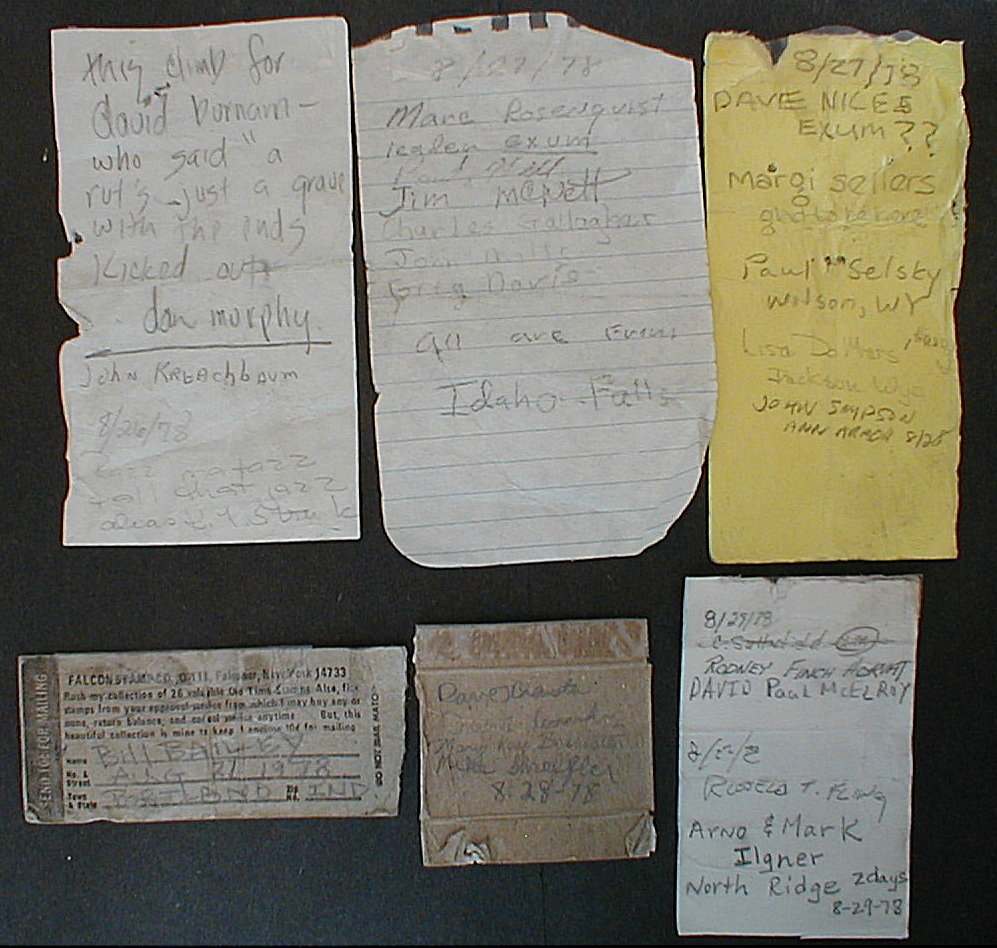 this climb for
david Burnam -
who said "a
rut's just a grave
with the ends
kicked out
dan murphy.
John Kreachbaum
8/26/78
Razz matazz
all that jazz
alias
8/27/78
Marc Rosenquist
Exum
Jim McNett
Charles Gallagher
John Mills
Greg Davis
all are from
Idaho Falls
8/27/78
DAVE NICES
EXUM??
Margi Sellers
glad to be here
Paul Selsky
Wilson, WY
Lisa
Jackson Wyo
JOHN SIMPSON
ANN ARBOR 8/28
SEND TO: FOR MAILING
FALCON STAMP CO., Falconer, New York 14733
Rush my collection of 26 valuable Old Time Stamps. Also, fine
stamps from your approval service from which I may buy any or
none, return balance, and cancel service anytime. But, this
beautiful collection is mine to keep I enclose 10¢ for mailing
Name Bill BAILEY
No. & Street AUG 21 1978
Town & State PORTLAND IND
DO NOT MAIL MATCHES
Dave
Mary Kay
Mike
8-28-78
8/29/78
RODNEY FINCH
DAVID Paul McELROY
Arno & Mark
Ilgner
North Ridge 2 days
8-29-78